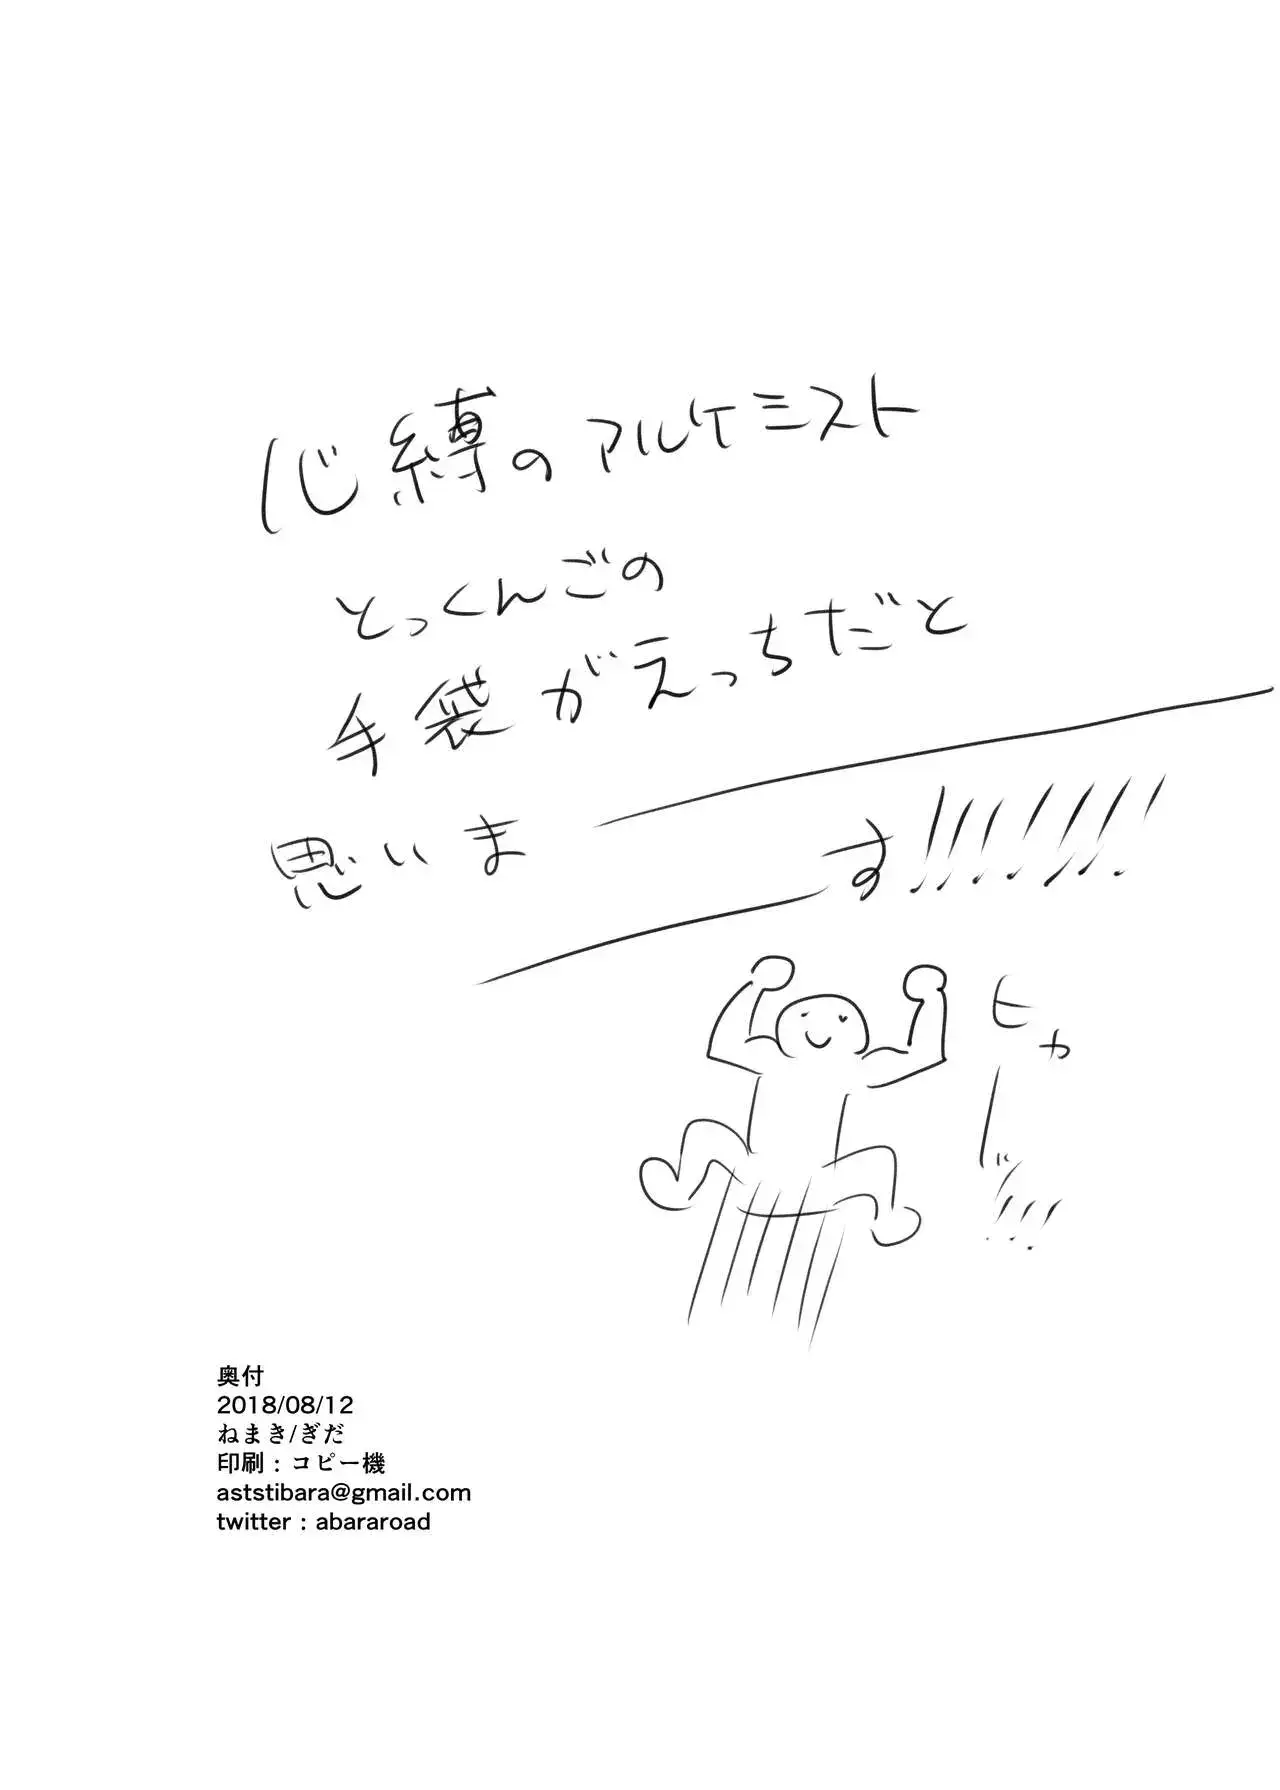 心縛のアルケミスト
とっくんごの
手袋がえっちだと
思いま
す!!!!!!!
ヒャーッ!!!
奥付
2018/08/12
ねまき/ぎだ
印刷：コピー機
aststibara@gmail.com
twitter：abararoad